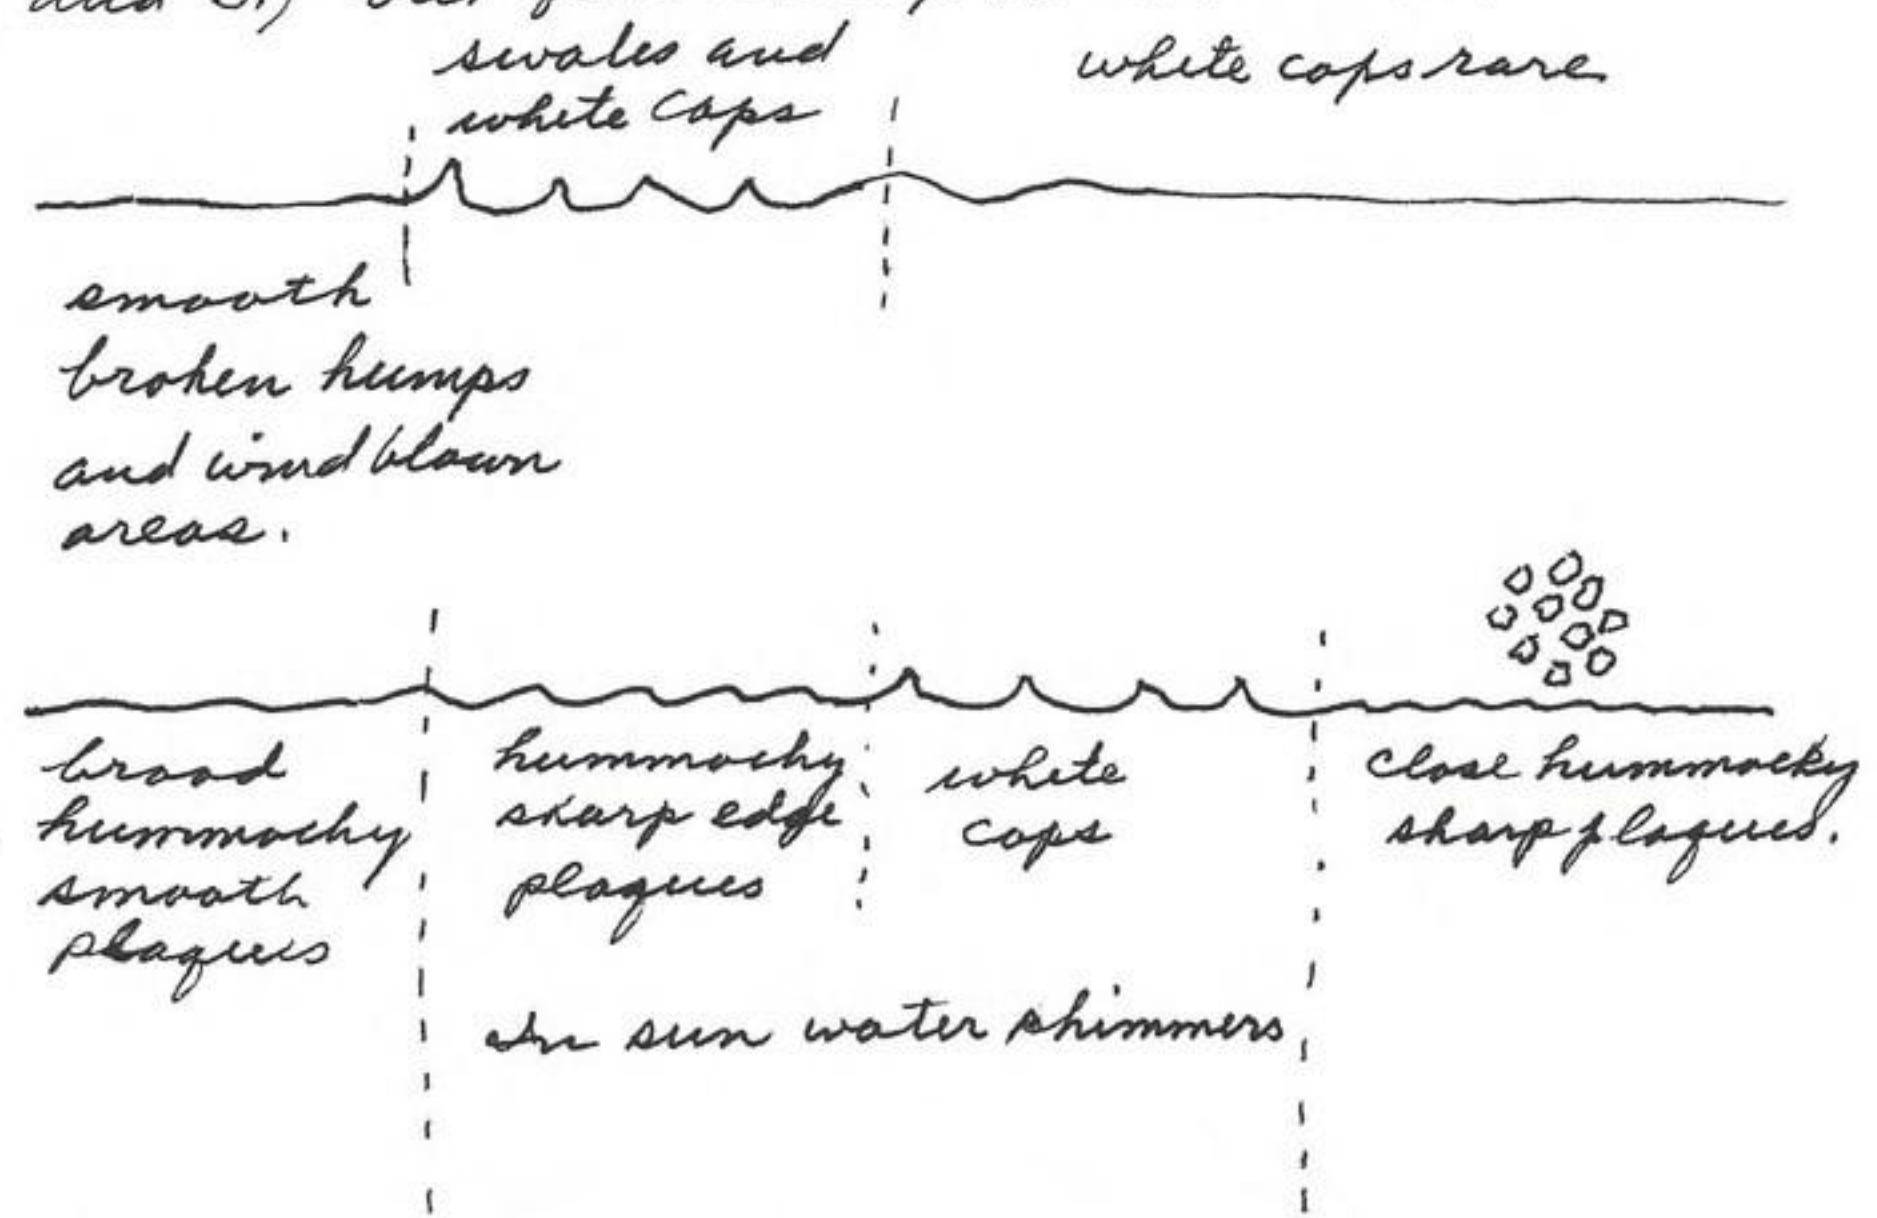 swales and
white caps
white caps rare
smooth
broken humps
and wind blown
areas.
broad
hummocky
smooth
plaques
hummocky
sharp edge
plaques
white
caps
close hummocky
sharp plaques.
In sun water shimmers